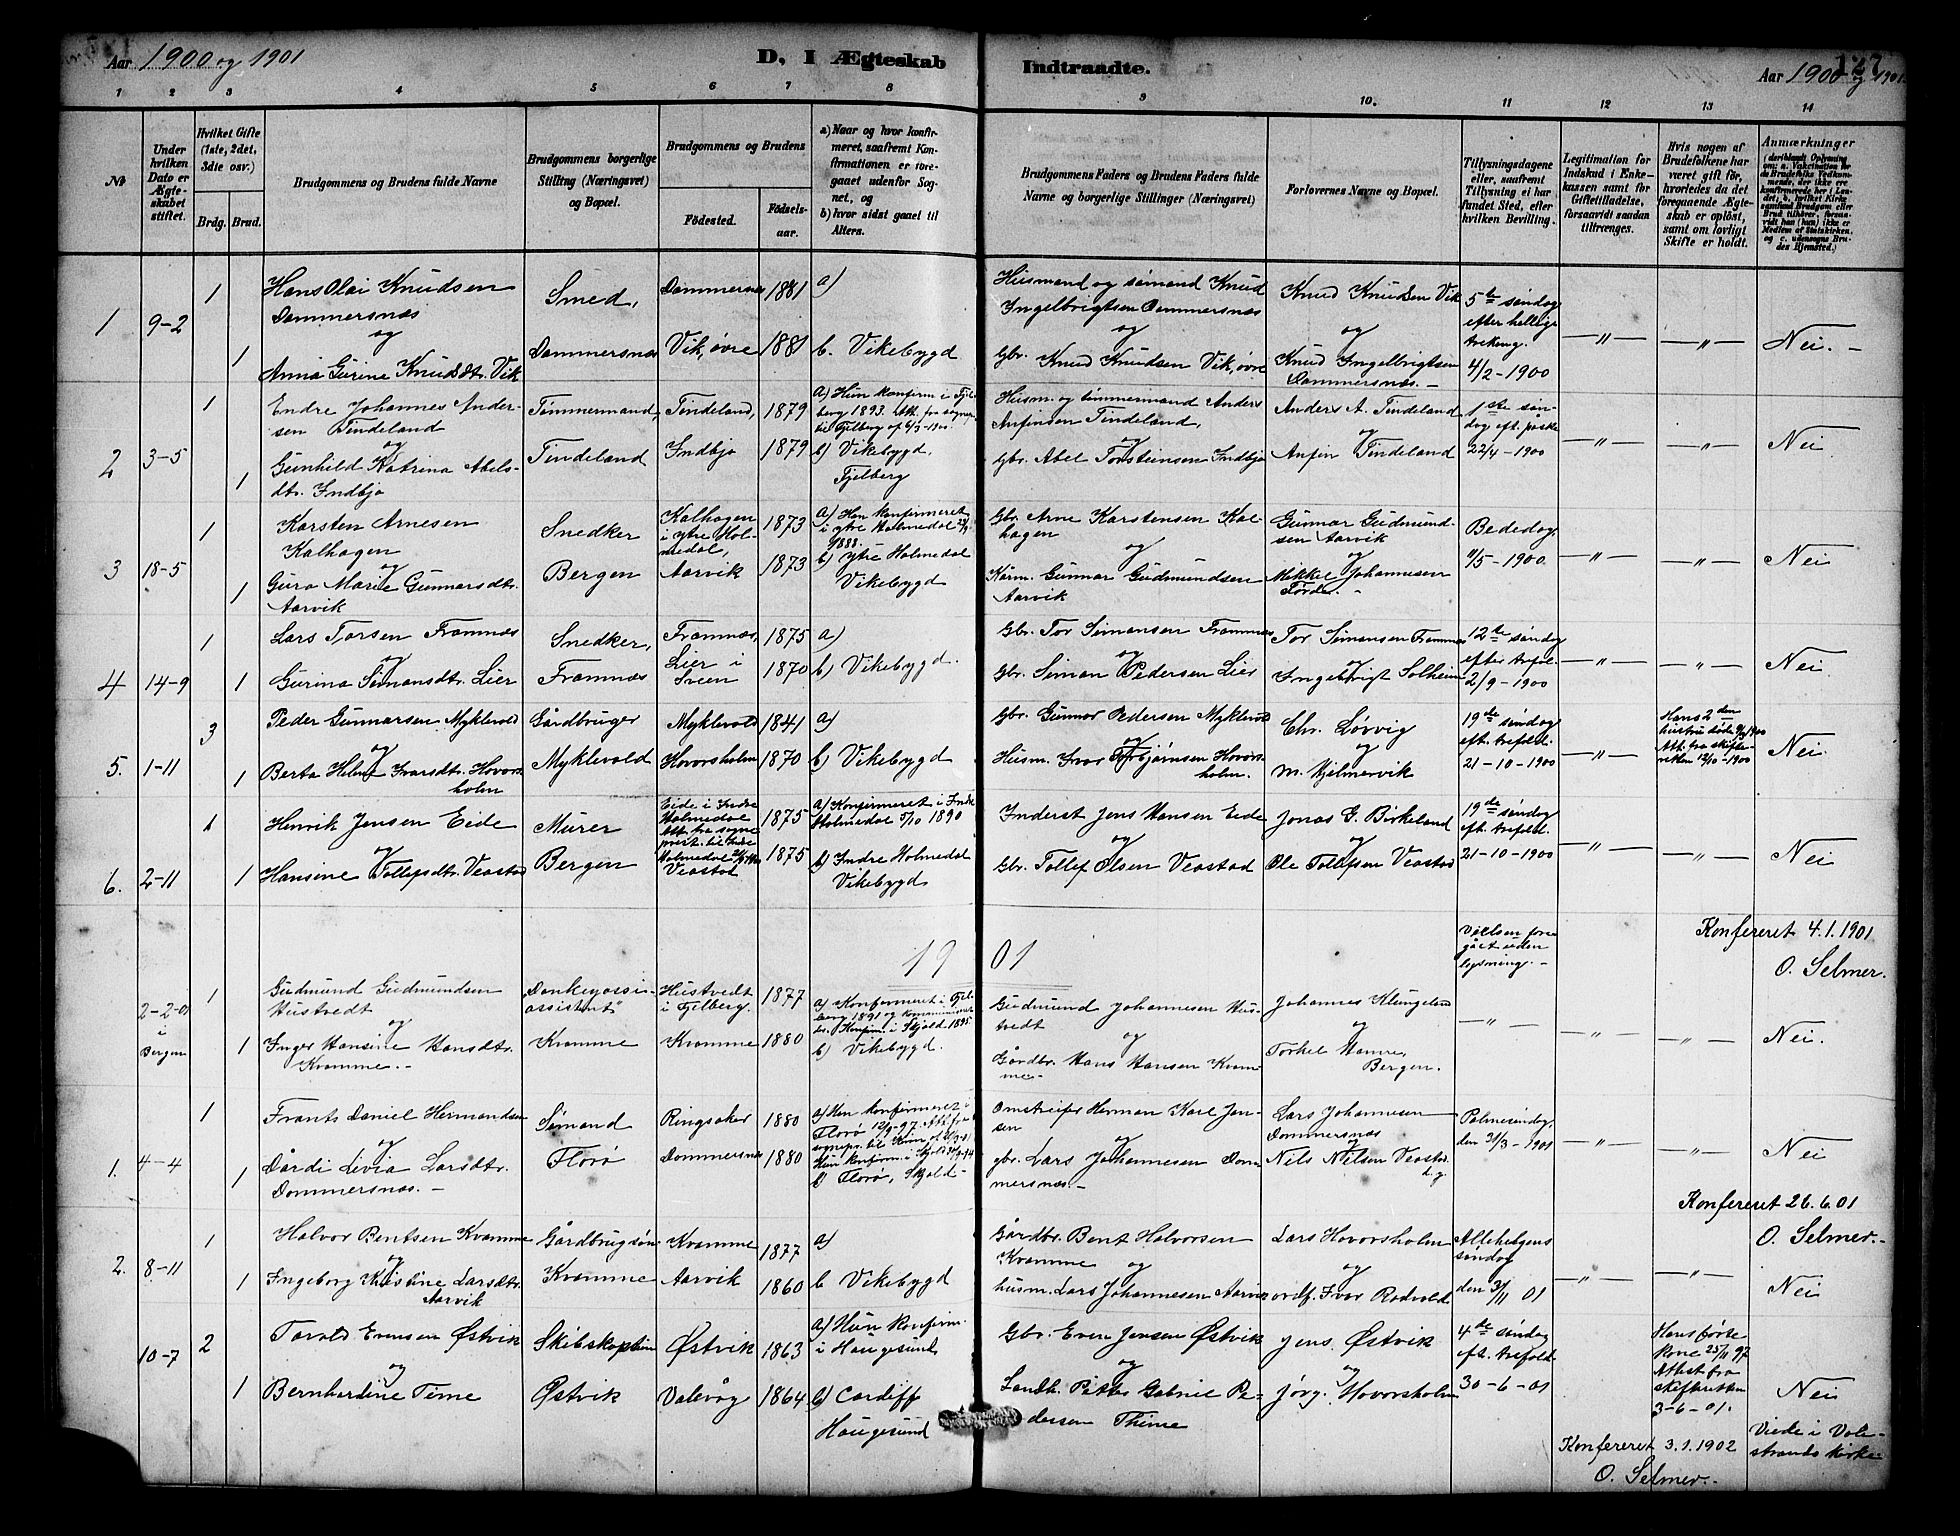 Aar 1900 og 1901
D, I Ægteskab Indtraadte.
127
Aar 1900 og 1901.
1 2 3 4 5 6 7 8 9 10. 11 12 13 14
№
Under hvilken Dato er Ægteskabet stiftet.
Hvilket Gifte (1ste, 2det, 3die osv.)
Brdg. Brud.
Brudgommens og Brudens fulde Navne
Brudgommens borgerlige Stilling (Næringsvei) og Bopæl.
Brudgommens og Brudens
Fødested.
Fødselsaar.
a) Naar og hvor konfirmeret, saafremt Konfirmationen er foregaaet udenfor Sognet, og
b) hvor sidst gaaet til Alters.
Brudgommens Faders og Brudens Faders fulde Navne og borgerlige Stillinger (Næringsvei)
Forlovernes Navne og Bopæl.
Tillysningsdagene eller, saafremt Tillysning ei har fundet Sted, efter hvilken Bevilling.
Legitimation for Indskud i Enkekassen samt for Giftetilladelse, forsaavidt saadan tiltrænges.
Hvis nogen af Brudefolkene har været gift før, hvorledes da det foregaaende Ægteskab er opløst, samt om lovligt Skifte er holdt.
Anmærkninger
1 9-2 1 Hans Olai Knudsen Dommersnæs Smed, Dommersnæs 1881 a) Husmand og sømand Knud Ingelbrigtsen Dommersnæs Knud Knudsen Vik 5te søndag efter hellig trekong.
og
1 Anna Gurine Knudsdtr. Vik Dommersnæs Vik, øvre 1881 b. Vikebygd Gbr. Knud Knudsen Vik, øvre og Knud Ingelbrigtsen Dommersnæs. 4/2-1900 —„— —„— Nei.
2 3-5 1 Endre Johannes Andersen Tindeland Tømmermand, Tindeland, 1879 a) Hun konfirm. i Fjelberg 1893. Husm. og tømmermand Anders Anfindsen Tindeland, Anders A. Tindeland 1ste søndag eft. paaske
og
1 Gunhild Katrina Abelsdtr. Indbjo Tindeland Indbjo 1879 b) Vikebygd, Fjelberg Gbr. Abel Torsteinsen Indbjo og Anfin Tindeland 22/4-1900 —„— —„— Nei
3 18-5 1 Karsten Arnesen Kalhagen Snedker Kalhagen i ytre Holmedal, 1873 a) Han konfirmeret i ytre Holmedal 1888. Gbr. Arne Karstensen Kalhagen Gunnar Gudmundsen Aarvik Bededag.
og
1 Guro Marie Gunnarsdtr. Aarvik Bergen Aarvik 1873 b) Ytre Holmedal Vikebygd Gunnar Gudmundsen Aarvik og Mikkel Johannesen Førde. 11/5-1900. —„— —„— Nei
4 14-9 1 Lars Torsen Framnæs Snedker, Framnæs, 1875 a) Gbr. Tor Simonsen Framnæs Tor Simonsen Framnæs 12te søndag efter trefol.
og
1 Gurina Simonsdtr. Lier Framnæs Lier i Sveen 1870 b) Vikebygd. Gbr. Simon Pedersen Lier og Ingebrigt Solheim 2/9-1900 —„— —„— Nei
5. 1-11 3 Peder Gunnarsen Myklevold Gårdbruger Myklevold 1841 a) Gbr. Gunnar Pedersen Myklevold Chr. Løvvig 19de søndag eft. trefold. Hans 2den hustru døde
og
1 Berta Helene Ivarsdtr. Hovorsholm Myklevold Hovorsholm 1870 b) Vikebygd Husm. Ivar Torbjørnsen Hovorsholm. og M. Hjelmervik 21-10-1900 —„— Att. fra skifteretten 12/10-1900 Nei
6. 2-11 1 Henrik Jensen Eide Murer Eide i Indre Holmedal 1875 a) Konfirmeret i Indre Holmedal 5/10 1890 Inderst Jens Hansen Eide Jonas G. Birkeland 19de søndag eft. trefold.
og
1 Hansine Tollefsdtr. Veastad Bergen Veastad 1875 b) Indre Holmedal Vikebygd Gbr. Tollef Olsen Veastad og Ole Tollefsen Veastad 21-10-1900 —„— —„— Nei
Konfereret 4.1.1901
O. Selmer.
1901
2-2-01 i Bergen 1 Gudmund Gudmundsen Hustvedt assistent" Hustvedt i Fjelberg. 1877 a) Konfirmeret i Fjelberg 1891 Gudmund Johannesen Hustvedt Johannes Klungeland Vielsen foregået uden lysning.
og
1 Inger Hansine Hansdtr. Kvamme. Kvamme Kvamme 1880 Konfirm. i Skjold 1895 b) Vikebygd. Gårdbr. Hans Hansen Kvamme og Torkel Hamre, Bergen. —„— —„— —„— Nei.
1. 4-4 1 Frants Daniel Hermandsen Sømand Ringsaker 1880 a) Han konfirmeret i Florø 12/9-97. Omstreifer Herman Karl Jansen Lars Johannesen Dommersnæs Palmesøndag,
og
1 Dårdi Livia Larsdtr. Dommersnæs. Florø Dommersnæs 1880 b) Florø, Skjold gbr. Lars Johannesen Dommersnæs. og Nils Nilsen Veastad den 31/3-1901 —„— —„— Nei
Konfereret 26.6.01
O. Selmer.
2. 8-11 1 Halvor Bentsen Kvamme Gårdbrugsøn Kvamme 1877 a) Gårdbr. Bent Halvorsen Kvamme Lars Hovorsholm Allehelgens søndag
og
1 Ingeborg Kristine Larsdtr. Aarvik Kvamme Aarvik 1860 b Vikebygd husm. Lars Johannesen Aarvik og ordf. Ivar Rødvold den 3/11 01 —„— —„— Nei
10-7 2 Torald Evensen Østvik Skibskaptein Østvik 1863 a) Hun konfirm. i Haugesund Gbr. Even Jensen Østvik Jens Østvik 4de søndag eft. trefold. Hans første kone 25/11 97.
og
1 Bernhardine Time Østvik Valevåg 1864 b) Cardiff Haugesund Landh. Petter Gabriel Pedersen Thime og Jørg. Hovorsholm 30-6-01 Attest fra skifteretten 3-6-01. Nei
Viede i Valestrands kirke
Konfereret 3.1.1902
O. Selmer.